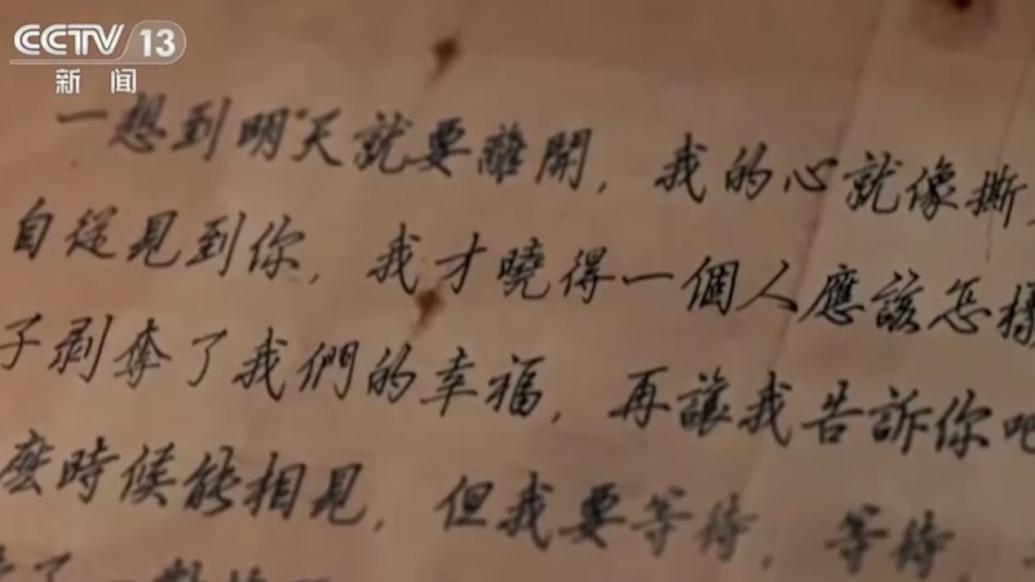 CCTV 13
新闻
一想到明天就要離開，我的心就像撕
自從見到你，我才曉得一個人應該怎樣
子剥奪了我們的幸福，再讓我告訴你吧
麼時候能相見，但我要等待，等待，